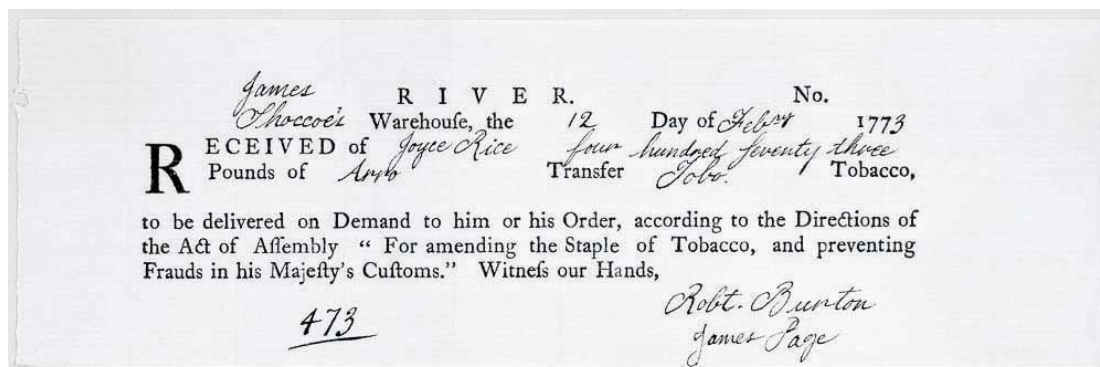 James RIVER. No.
Shoccoe's Warehouſe, the 12 Day of Febry 1773
RECEIVED of Joyce Rice four hundred ſeventy three
Pounds of Arro Transfer Tobo. Tobacco,
to be delivered on Demand to him or his Order, according to the Directions of
the Act of Aſſembly “ For amending the Staple of Tobacco, and preventing
Frauds in his Majeſty's Cuſtoms.” Witneſs our Hands,
473
Robt. Burton
James Page